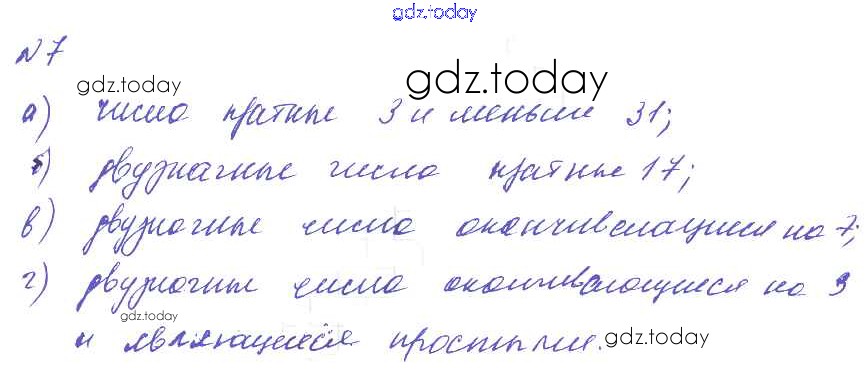 gdz.today
N7
gdz.today gdz.today
а) число кратные 3 и меньше 31;
б) двузначные число кратные 17;
в) двузначные число оканчивающиеся на 7;
г) двузначные число оканчивающиеся на 3
gdz.today
и являющиеся простыми. gdz.today